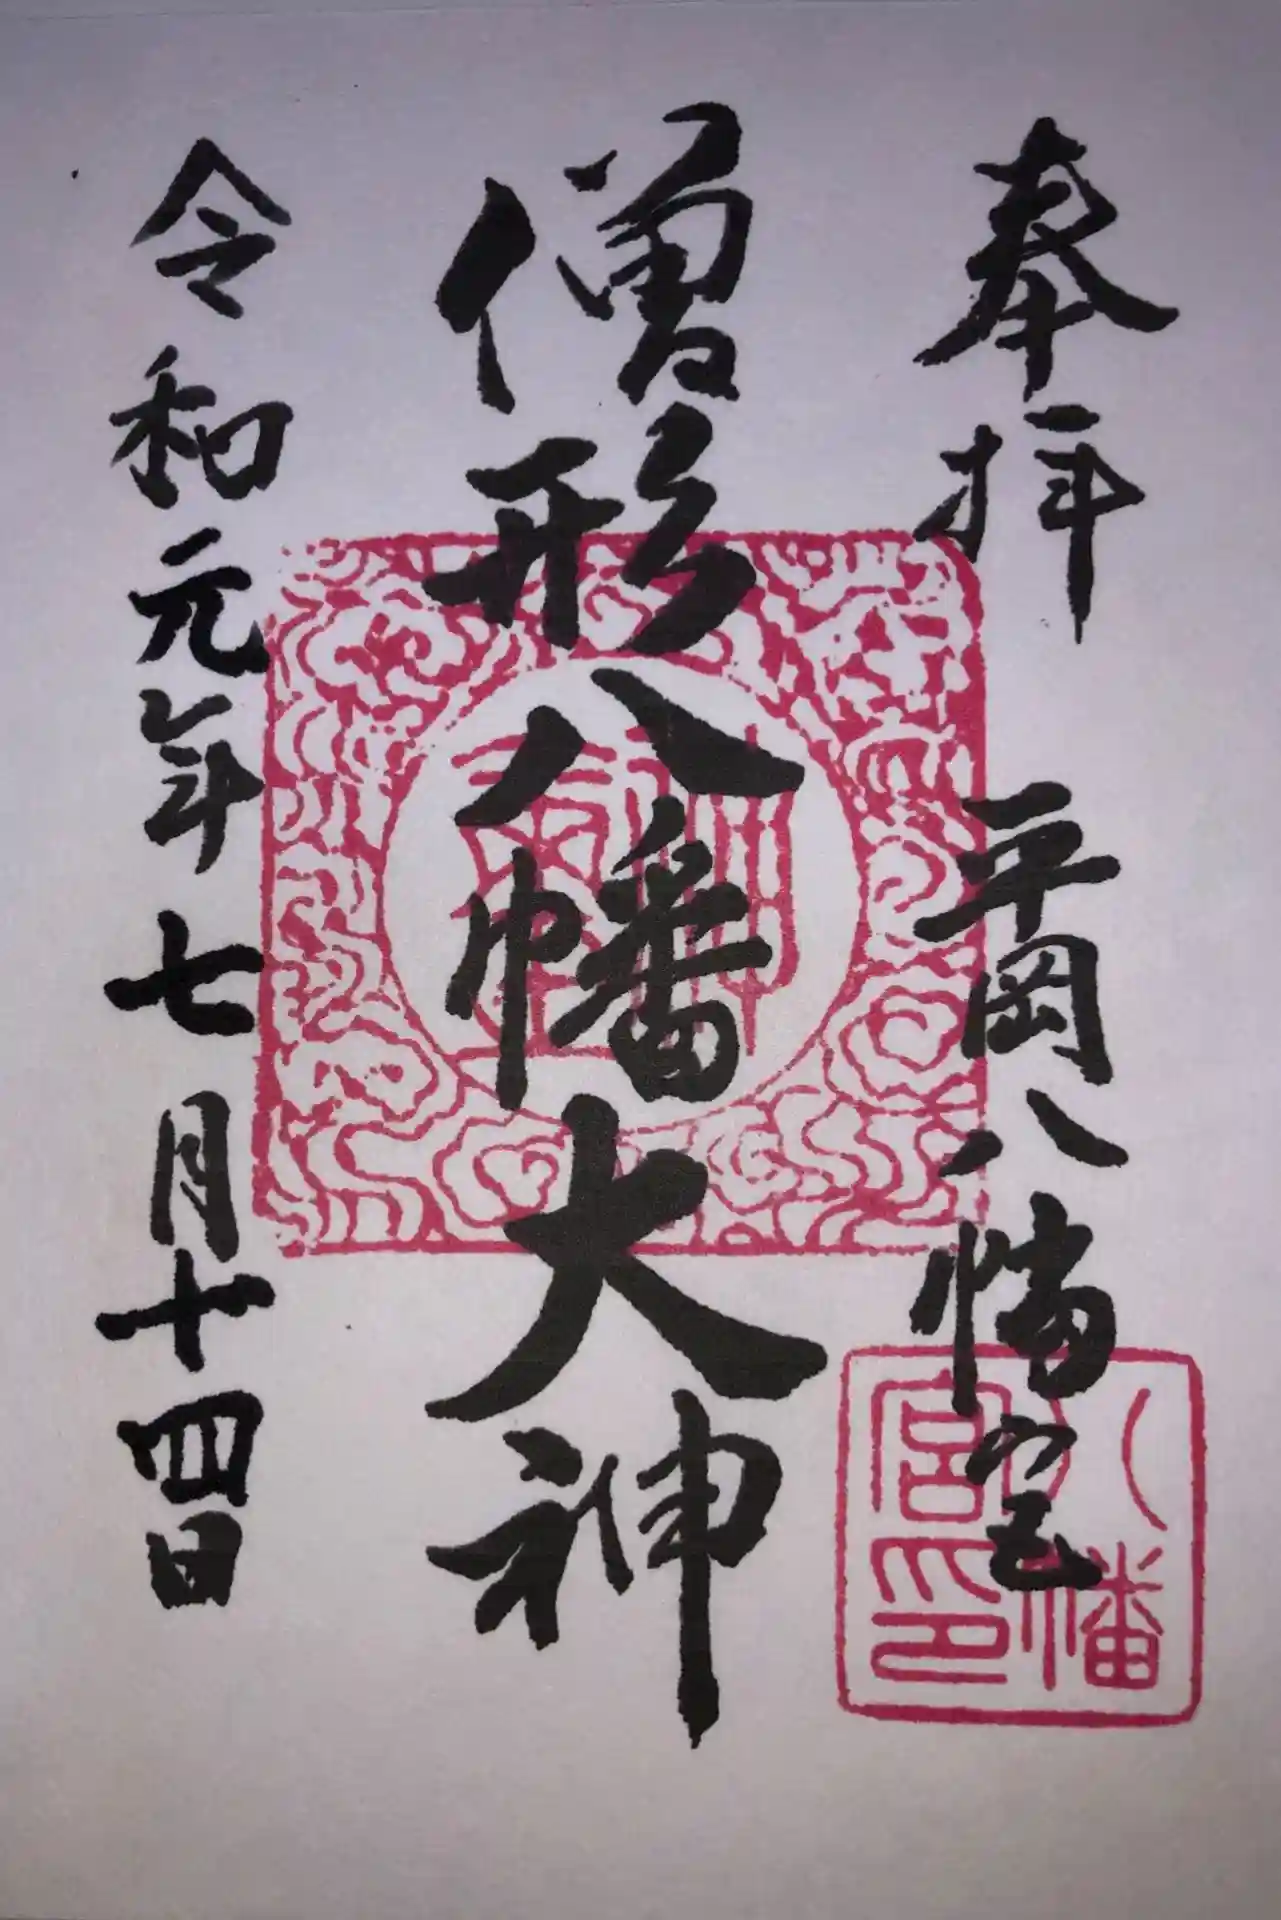 奉拝　平岡八幡宮
僧形八幡大神
令和元年七月十四日
八幡
宮印